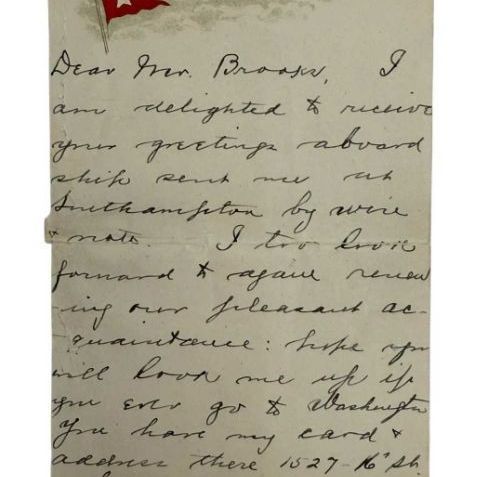 Dear Mr. Brooks, I
am delighted to receive
your greetings aboard
ship sent me at
Southampton by wire
& note. I too look
forward to again renew
ing our pleasant ac-
quaintance: hope you
will look me up if
you ever go to Washington
You have my card &
address there 1527-16" St.